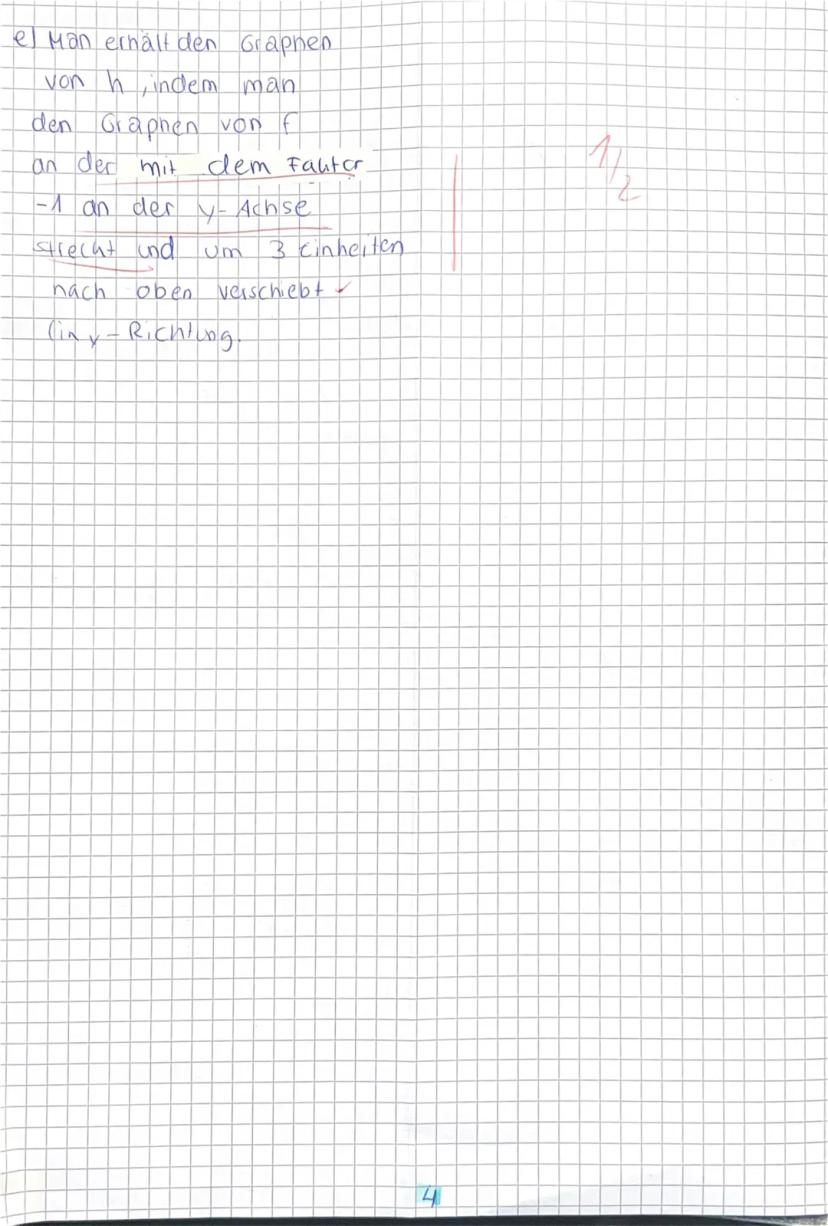 e) Man erhält den Graphen
von h, indem man
den Graphen von f
an der mit dem Faktor
-1 an der y-Achse
streckt und um 3 Einheiten
nach oben verschiebt ✓
(in y-Richtung.
1/2
4